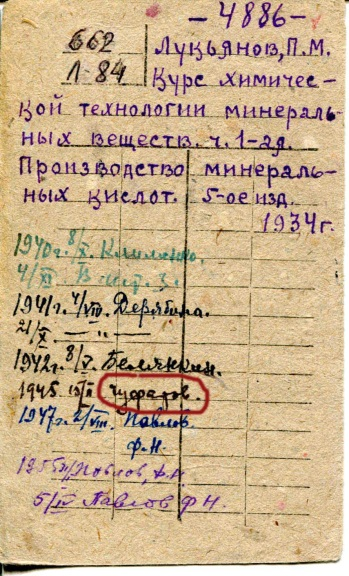 -4886-
662
Л-84
Лукьянов, П.М.
Курс химичес-
кой технологии минераль-
ных веществ. ч. 1-ая.
Производство минераль-
ных кислот. 5-ое изд.
1934 г.
1940 г. 8/X. Клименко.
4/XI В чит. з.
1941 г. 4/VIII. Дерябина.
21/X. — " —
1942 г. 8/V. Белянкин.
1945 Чуфаров.
1947 г. 2/VIII. Павлов
Ф.Н.
Павлов, Ф.Н.
5/IV Павлов Ф Н.